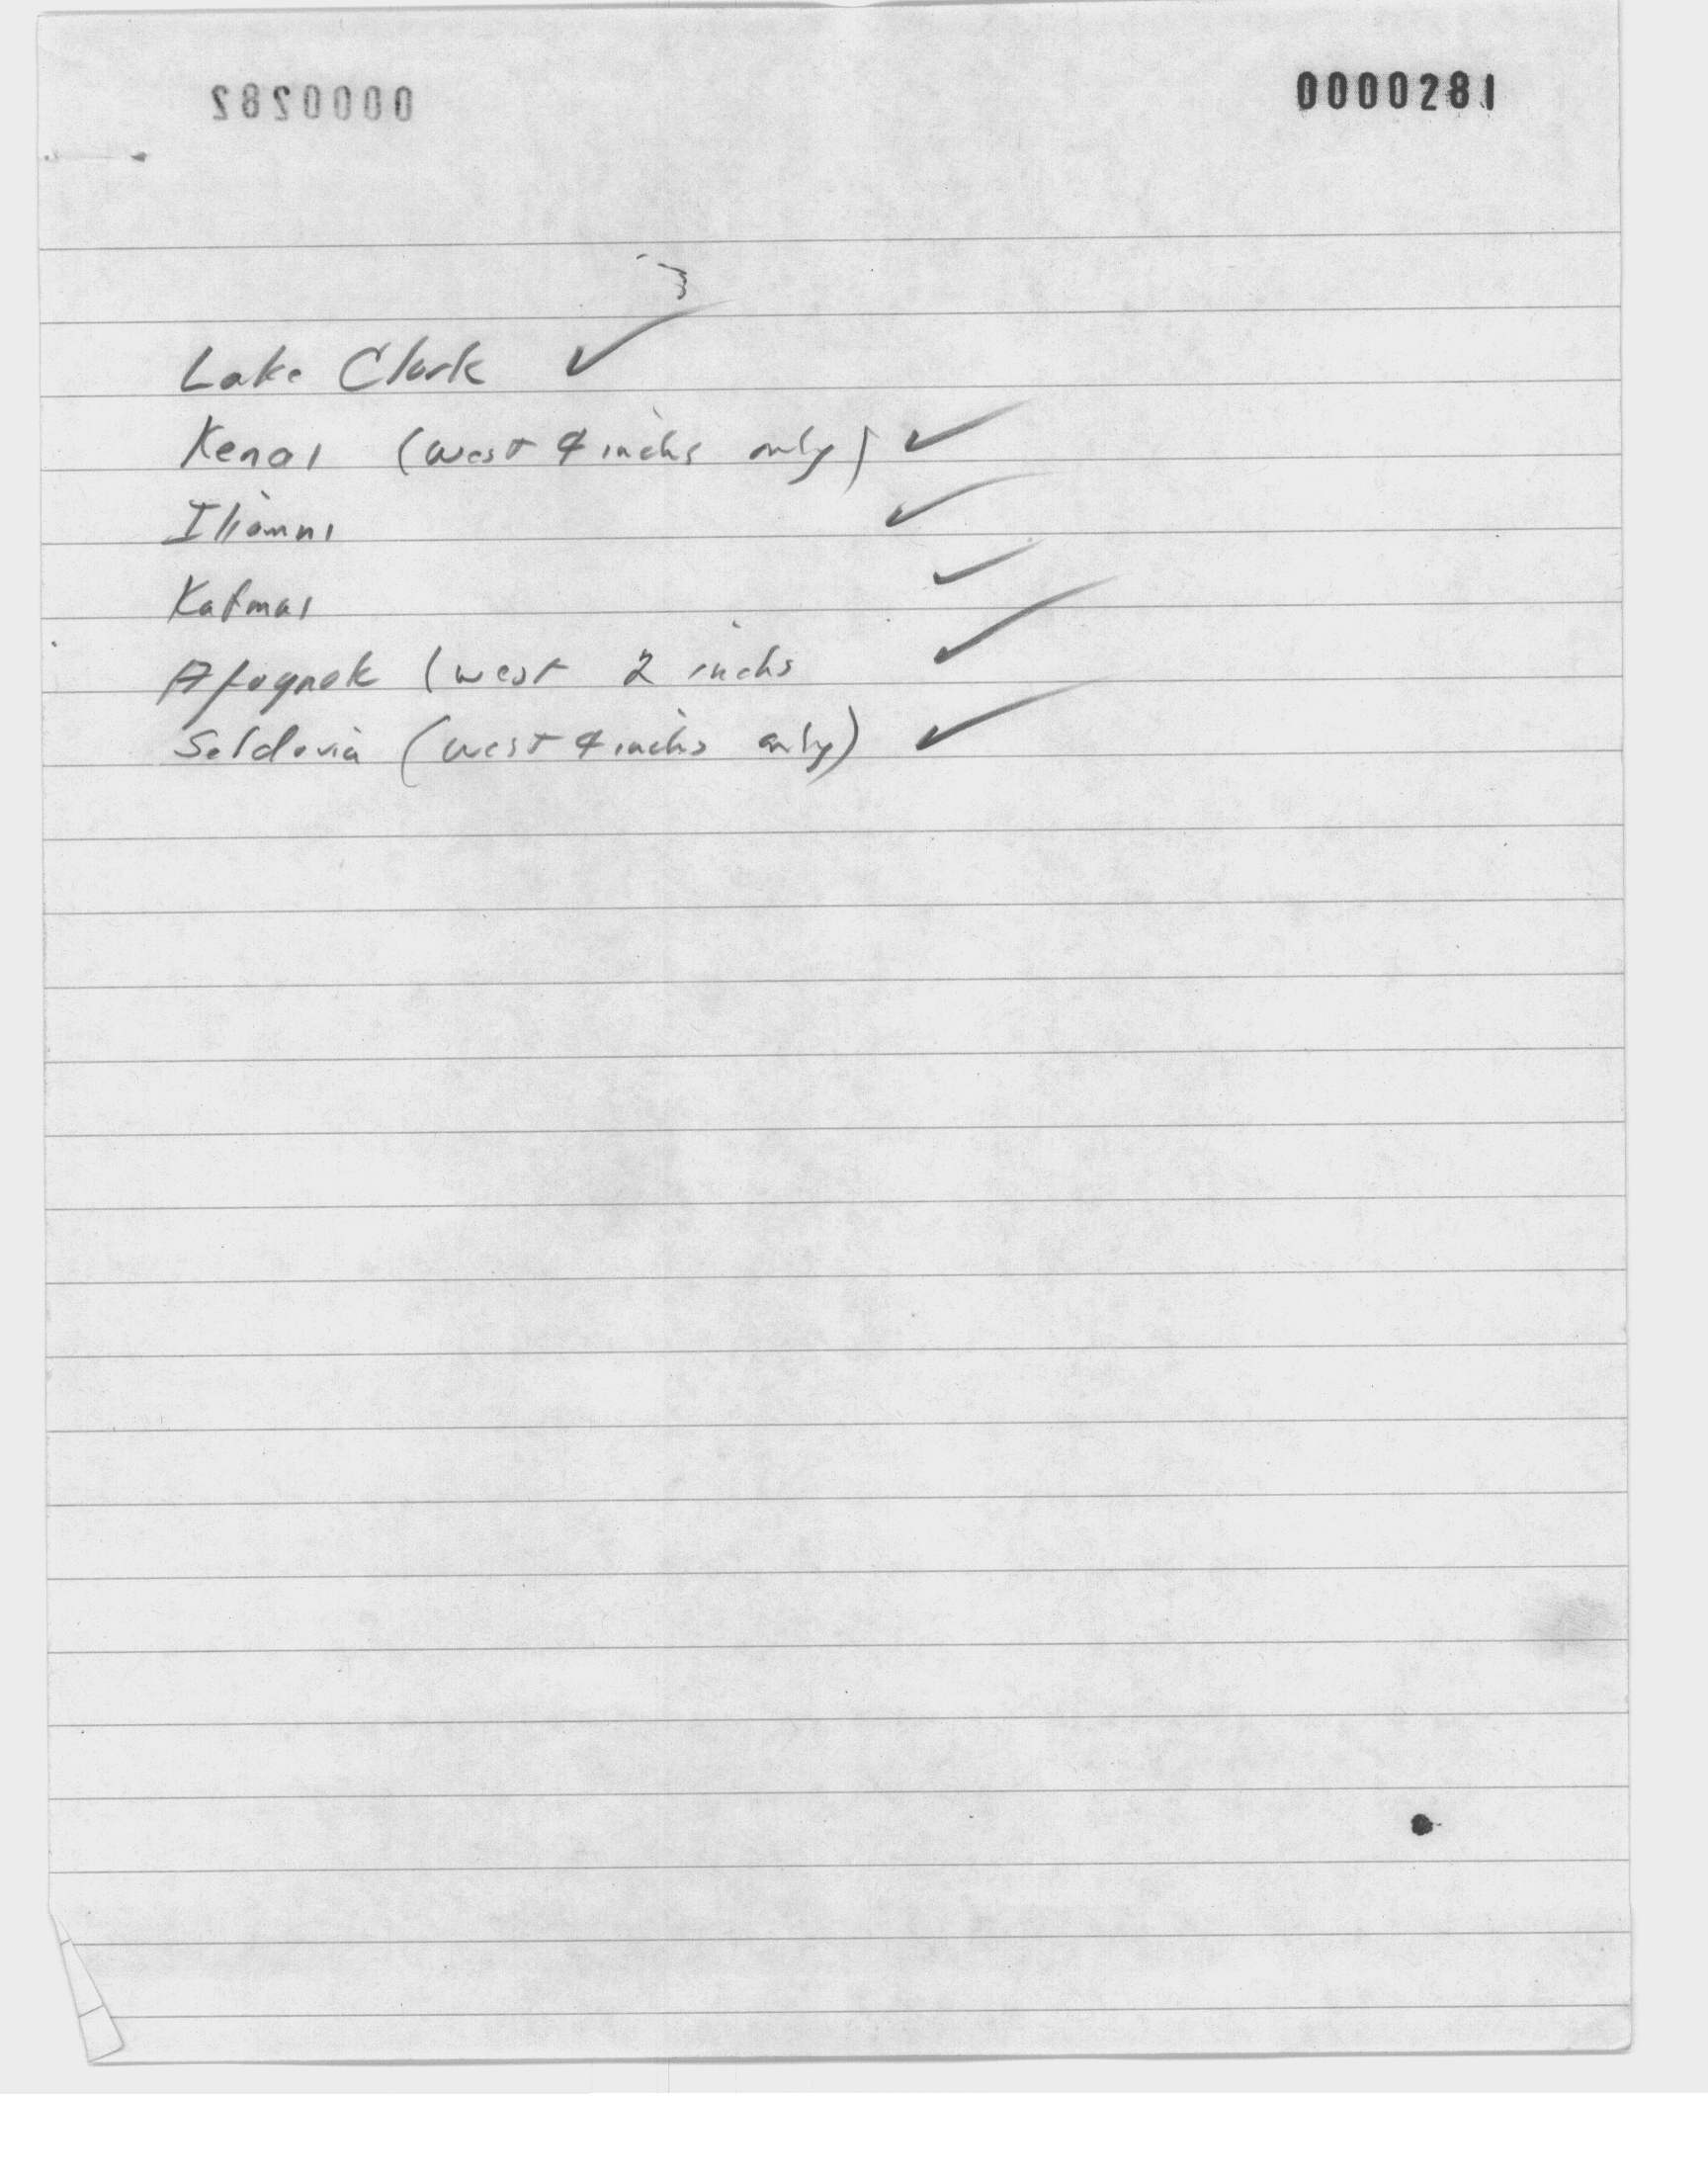 0000282 0000281
Lake Clark ✓
Kenai (west 4 inchs only) ✓
Iliamni ✓
Katmai ✓
Afognak (west 2 inchs ✓
Seldovia (west 4 inchs only) ✓